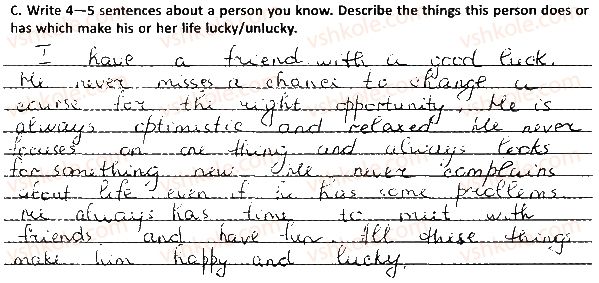 C. Write 4—5 sentences about a person you know. Describe the things this person does or
has which make his or her life lucky/unlucky.
I have a friend with a good luck.
He never misses a chance to change a
course for the right opportunity. He is
always optimistic and relaxed He never
focuses on one thing and always looks
for something new. He never complains
about life even if he has some problems.
He always has time to meet with
friends and have fun. All these things
make him happy and lucky.